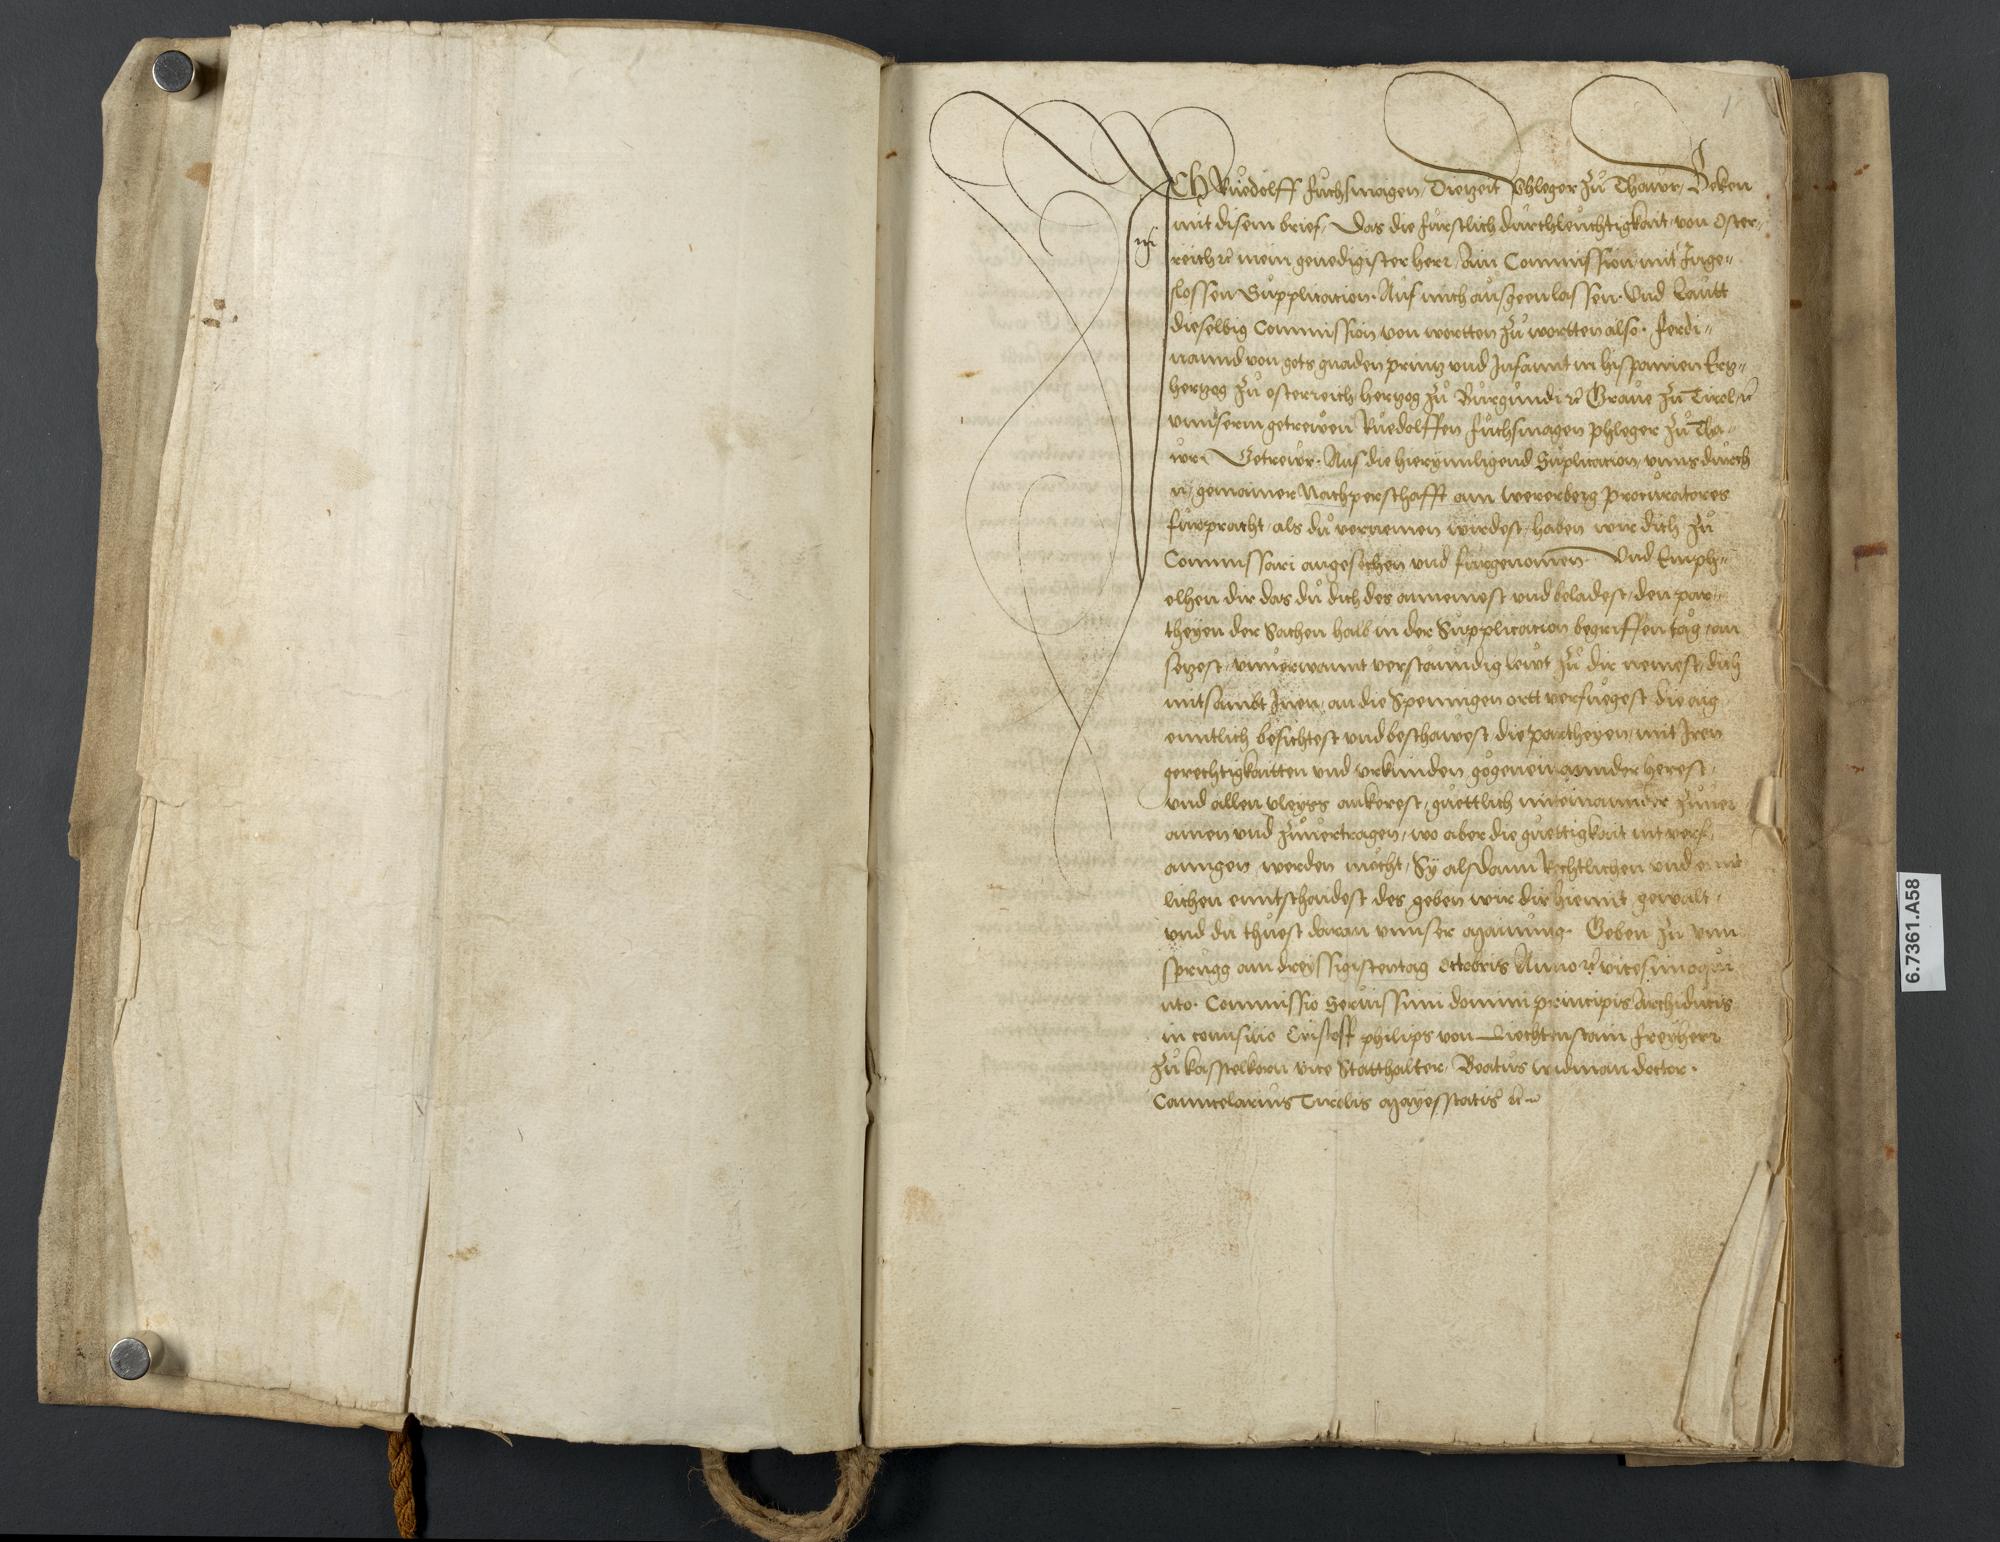 1
ICH Ruedolff Fuchsmagen, Dietzeit Phleger zu Thawr, Beken
mit disem brief, Das die fürstlich durchleuchtigkait von Oster-
reich rc mein genedigister herr, Ain Commission mit Inge-
slossen Supplication Auf mich ausgeen lassen. Und Lautt
dieselbig Commission von wortten zu wortten also. Ferdi-
nannd von gots gnaden printz und Infannt in hispanien Ertz-
hertzog zu osterreich hertzog zu Burgundi rc Grave zu Tirol rc
unnserm getrewen Ruedolffen Fuchsmagen phleger zu Tha-
wr. Getrewr. Auf die hieryнnligend Suplication, unns durch
n, gemainer Nachperschafft am wererberg procuratores
fürpracht, als du vernemen wirdest, haben wir dich zu
Commissari angesechen und fürgenomen Und Emph-
elhen dir das du dich des annemest und beladest, den par-
theyen der Sachen halb in der Supplication begriffen tag an
setzest, unverwannt verstänndig lewt zu dir nemest, dich
mitsambt Inen, an die Spennigen ortt verfuegest die aig
enntlich besichtest und beschawest die partheyen, mit Iren
gerechtigkaitten und urkunden gögeneinannder herest,
und allen vleyss ankerest, guettlich miteinannder zuver
ainen und zuvertragen, wo aber die guettigkait nit verf-
anngen werden möcht, Sy alsdann Rechtlichen und ennt
lichen enntschaidest des geben wir dir hiemit gewalt,
und du thuest daran unnser Mainung. Geben zu Ynn
sprugg am dreyssigistentag Octobris Anno rc vicesimoqui
nto. Commissio Serenissimi domini principis Archiducis
in consilio Cristoff philips von Liechtenstain freyherr
zu kasstelkorn vice Statthalter, Beatus widman doctor.
Canncelarius Tirolis
6.7361.A58